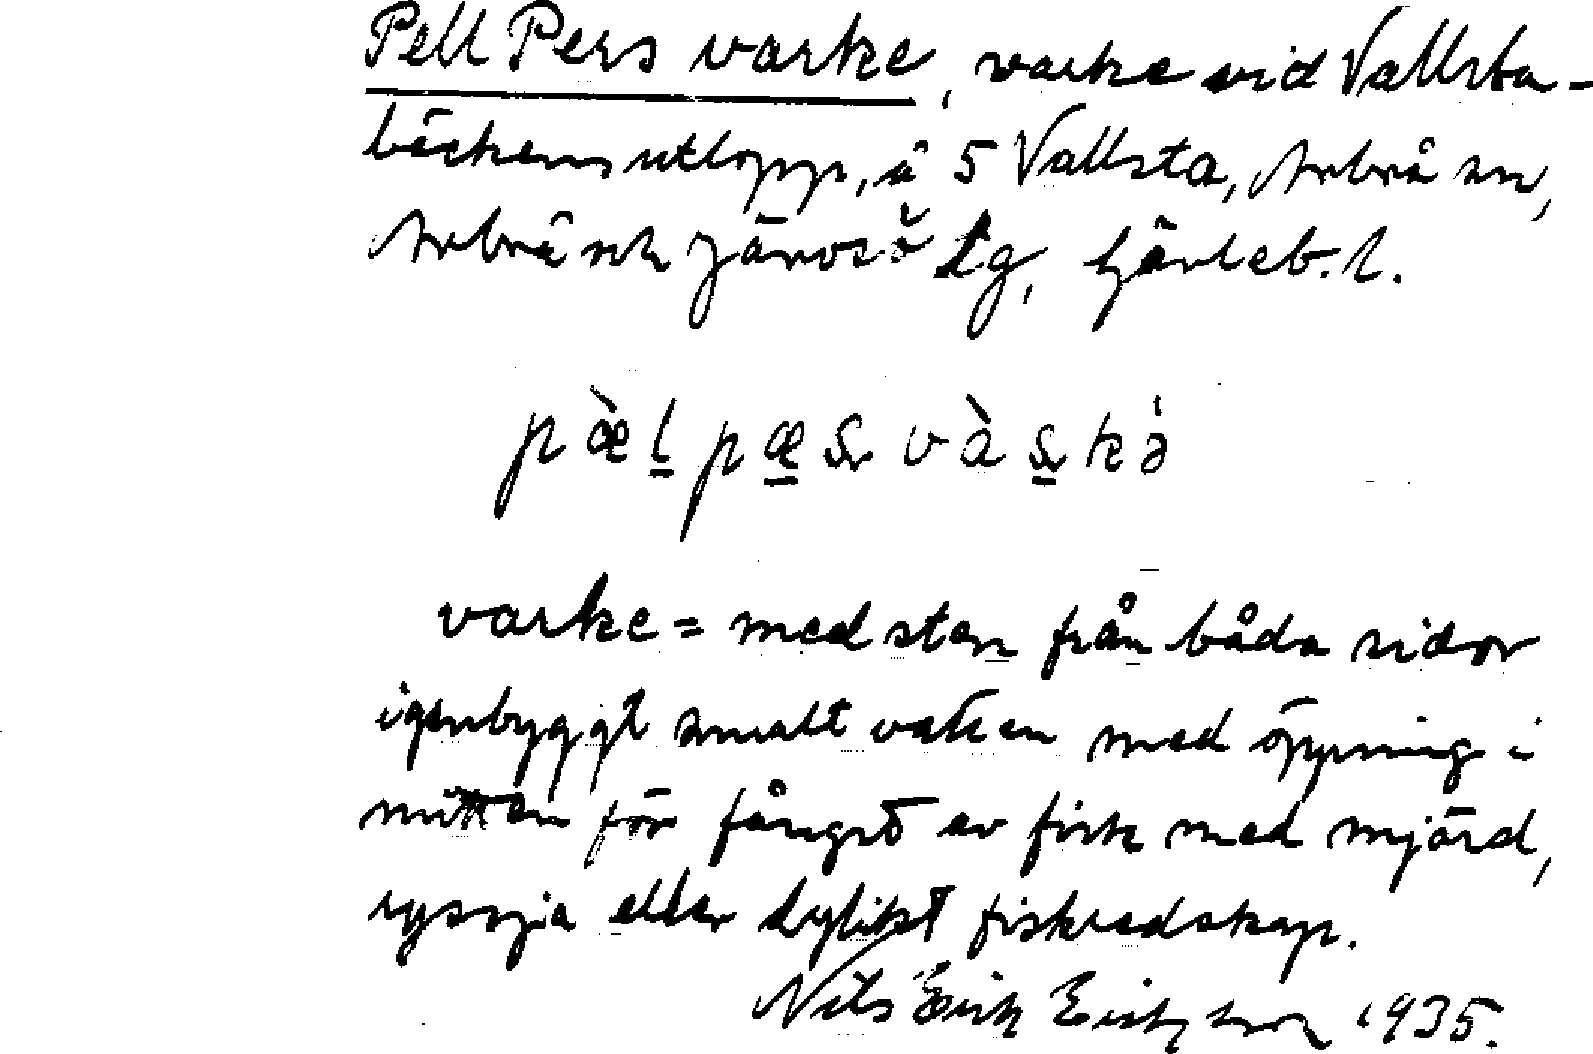 Pell Pers varke, varke vid Vallsta-
bäckens utlopp, å 5 Vallsta, Arbrå sn,
Arbrå och Järvsö tg, Gävleb. l.
pæ̀l pæs̨ và s̨kə
varke = med sten från båda sidor
igenbyggt smalt vatten med öppning i
mitten för fångst av fisk med mjärd,
ryssja eller dylikt fiskredskap.
Nils Erik Eriksson 1935.